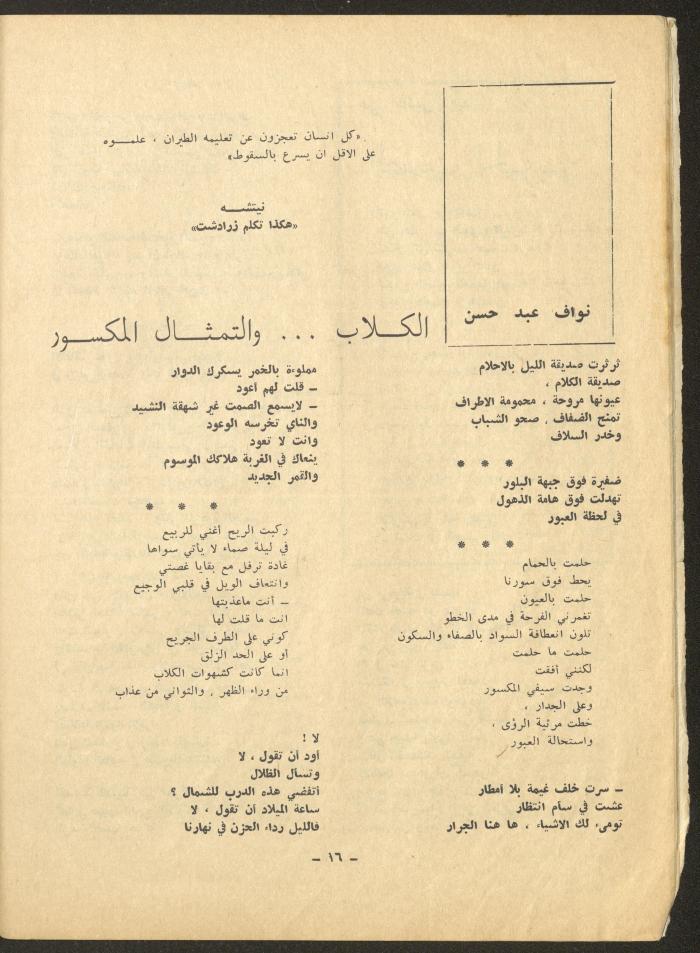 «كل انسان تعجزون عن تعليمه الطيران ، علمـــوه
على الاقل ان يسرع بالسقوط»
نيتشـــه
«هكذا تكلم زرادشت»
نواف عبد حسن
الكـــلاب ... والتمثـــال المكســـور
ثرثرت صديقة الليل بالاحلام
صديقة الكلام ،
عيونها مروحة ، محمومة الاطراف
تمنح الضفاف . صحو الشباب
وخدر السلاف
* * *
ضفيرة فوق جبهة البلور
تهدلت فوق هامة الذهول
في لحظة العبور
* * *
حلمت بالحمام
يحط فوق سورنا
حلمت بالعيون
تغمرني الفرحة في مدى الخطو
تلون انعطافة السواد بالصفاء والسكون
حلمت ما حلمت
لكنني أفقت
وجدت سيفي المكسور
وعلى الجدار ،
خطت مرثية الرؤى ،
واستحالة العبور
ـ سرت خلف غيمة بلا أمطار
عشت في سأم انتظار
تومىء لك الاشياء ، ها هنا الجرار
مملوءة بالخمر يسكرك الدوار
ـ قلت لهم أعود
ـ لايسمع الصمت غير شهقة النشيد
والناي تخرسه الوعود
وانت لا تعود
ينعاك في الغربة هلاكك الموسوم
والقمر الجديد
* * *
ركبت الريح أغني للربيع
في ليلة صماء لا يأتي سواها
غادة ترفل مع بقايا غصتي
وانتعاف الويل في قلبي الوجيع
ـ أنت ماعذبتها
انت ما قلت لها
كوني على الطرف الجريح
او على الحد الزلق
انما كانت كشهوات الكلاب
من وراء الظهر . والثواني من عذاب
لا !
أود أن تقول ، لا
وتسأل الظلال
أتفضي هذه الدرب للشمال ؟
ساعة الميلاد أن تقول ، لا
فالليل رداء الحزن في نهارنا
ـ ١٦ ـ